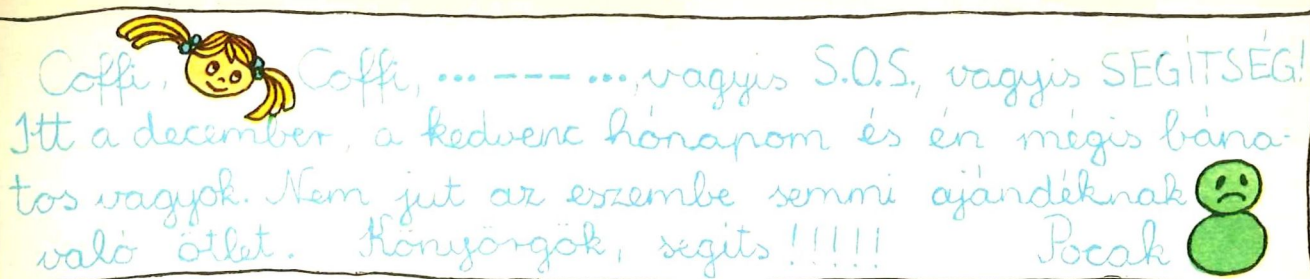 Coffi, Coffi, ... --- ..., vagyis S.O.S., vagyis SEGÍTSÉG!
Itt a december, a kedvenc hónapom és én mégis bána-
tos vagyok. Nem jut az eszembe semmi ajándéknak
való ötlet. Könyörgök, segíts!!!!! Pocak